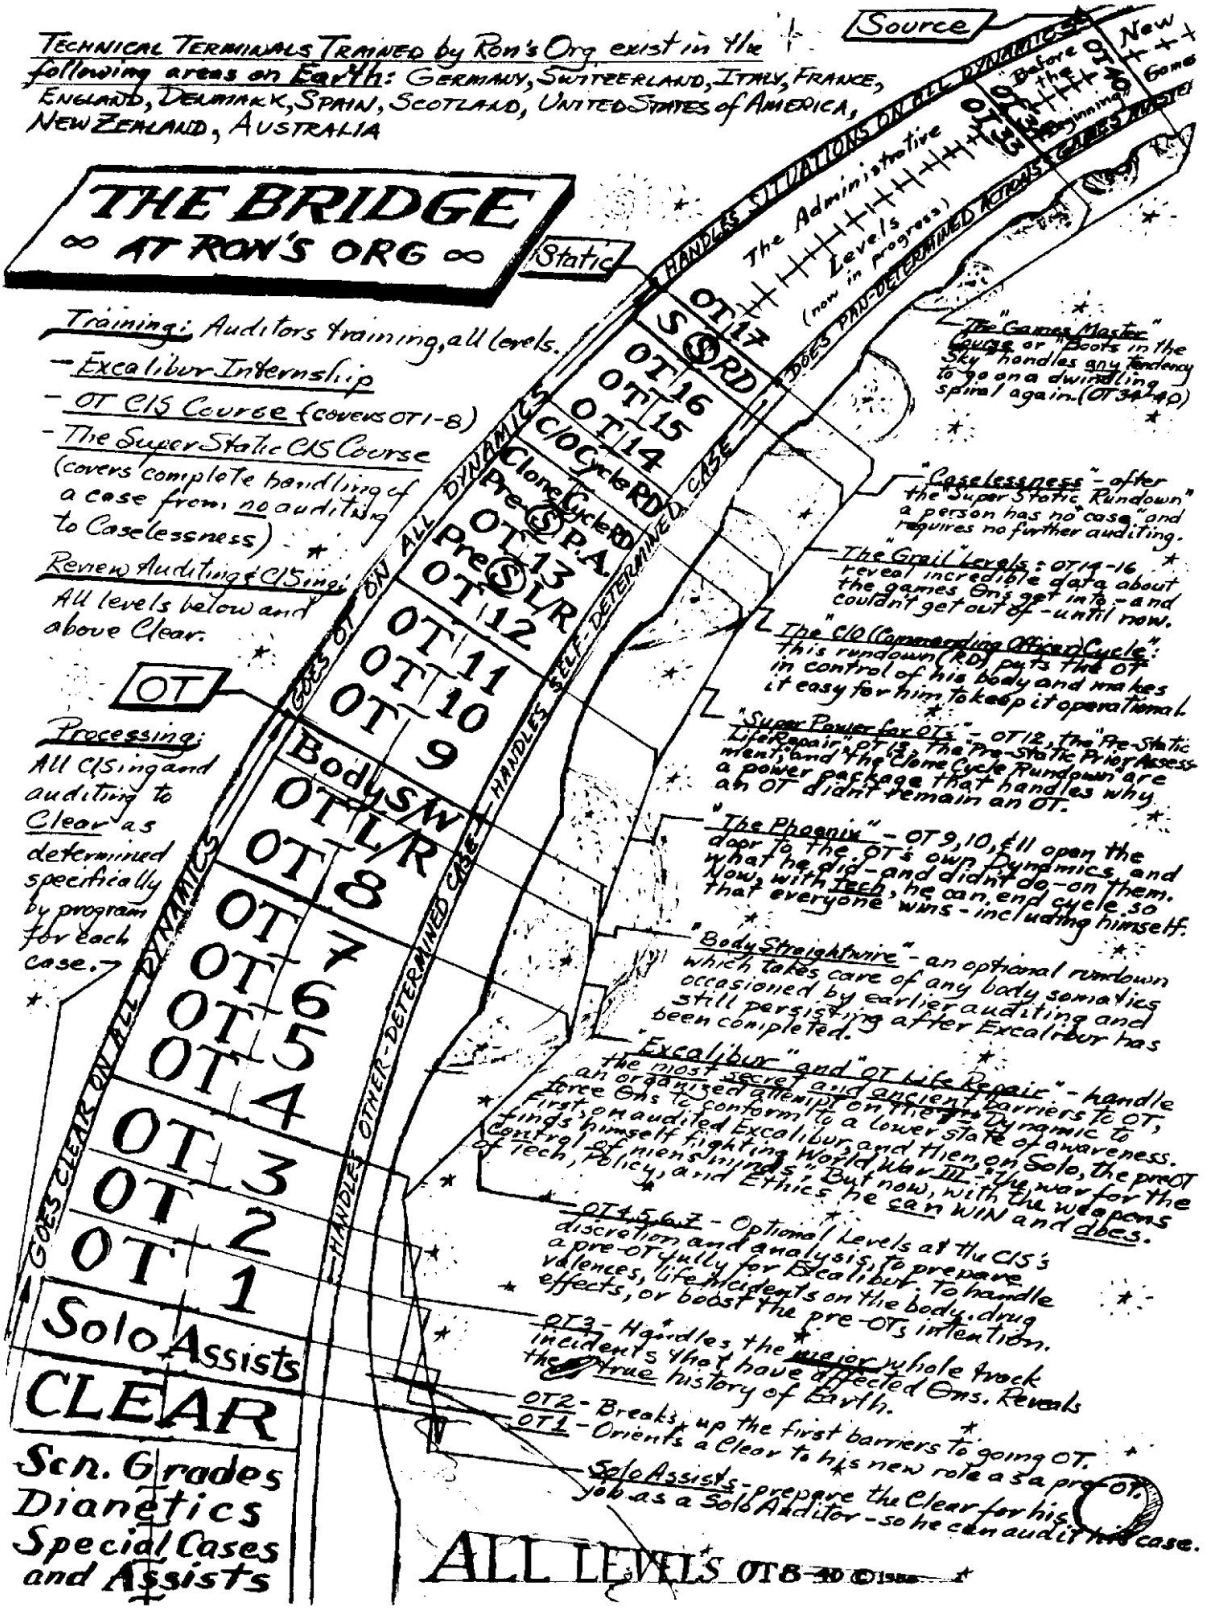 Source
TECHNICAL TERMINALS TRAINED by Ron's Org exist in the
following areas on Earth: GERMANY, SWITZERLAND, ITALY, FRANCE,
ENGLAND, DENMARK, SPAIN, SCOTLAND, UNITED STATES of AMERICA,
NEW ZEALAND, AUSTRALIA
THE BRIDGE
∞ AT RON'S ORG ∞
Static
Training: Auditors training, all levels.
- Excalibur Internship
- OT C/S Course (covers OT1-8)
- The Super Static C/S Course
(covers complete handling of
a case from no auditing
to Caselessness)
Review Auditing & C/Sing:
All levels below and
above Clear.
OT
Processing:
All C/Sing and
auditing to
Clear as
determined
specifically
by program
for each
case.
New
Game
OT 40
"Before
the
Beginning"
OT 34
OT 33
The Administrative
Levels
(now in progress)
OT 17
S S RD
OT 16
OT 15
OT 14
C/O Cycle RD
Clone Cycle RD
Pre-S P.A.
OT 13
Pre S L/R
OT 12
OT 11
OT 10
OT 9
Body S/W
OT L/R
OT 8
OT 7
OT 6
OT 5
OT 4
OT 3
OT 2
OT 1
Solo Assists
CLEAR
Scn. Grades
Dianetics
Special Cases
and Assists
GOES CLEAR ON ALL DYNAMICS
GOES OT ON ALL DYNAMICS
HANDLES SITUATIONS ON ALL DYNAMICS
HANDLES OTHER-DETERMINED CASE
HANDLES SELF-DETERMINED CASE
DOES PAN-DETERMINED ACTIONS
GAMES MASTER
The "Games Master"
Course or "Boots in the
Sky" handles any tendency
to go on a dwindling
spiral again. (OT 34-40)
"Caselessness" - after
the "Super Static Rundown"
a person has no "case" and
requires no further auditing.
The "Grail" Levels: OT14-16
reveal incredible data about
the games Θns get into - and
couldn't get out of - until now.
The "C/O (Commanding Officer) Cycle":
this rundown (RD) puts the OT
in control of his body and makes
it easy for him to keep it operational.
"Super Power for OTs" - OT12, the "Pre-Static
Life Repair", OT13, the "Pre-Static Prior Assess-
ment," and the Clone Cycle Rundown are
a power package that handles why
an OT didn't remain an OT.
"The Phoenix" - OT 9, 10, & 11 open the
door to the OT's own Dynamics, and
what he did - and didn't do - on them.
Now, with Tech, he can end cycle so
that everyone wins - including himself.
"Body Streightwire" - an optional rundown
which takes care of any body somatics
occasioned by earlier auditing and
still persisting after Excalibur has
been completed.
"Excalibur" and "OT Life Repair" - handle
the most secret and ancient barriers to OT,
an organized attempt on the Dynamic to
force Θns to conform to a lower state of awareness.
First, on audited Excalibur, and then, on Solo, the preOT
finds himself fighting World War III - "the war for the
control of men's minds". But now, with the weapons
of Tech, Policy, and Ethics he can WIN and does.
OT4,5,6,7 - Optional Levels at the C/S's
discretion and analysis, to prepare
a pre-OT fully for Excalibur. To handle
valences, life incidents on the body, drug
effects, or boost the pre-OTs intention.
OT3 - Handles the major whole track
incidents that have affected Θns. Reveals
the true history of Earth.
OT2 - Breaks up the first barriers to going OT.
OT1 - Orients a Clear to his new role as a pre-OT.
Solo Assists - prepare the Clear for his
job as a Solo Auditor - so he can audit his case.
ALL LEVELS OT8-40 ©